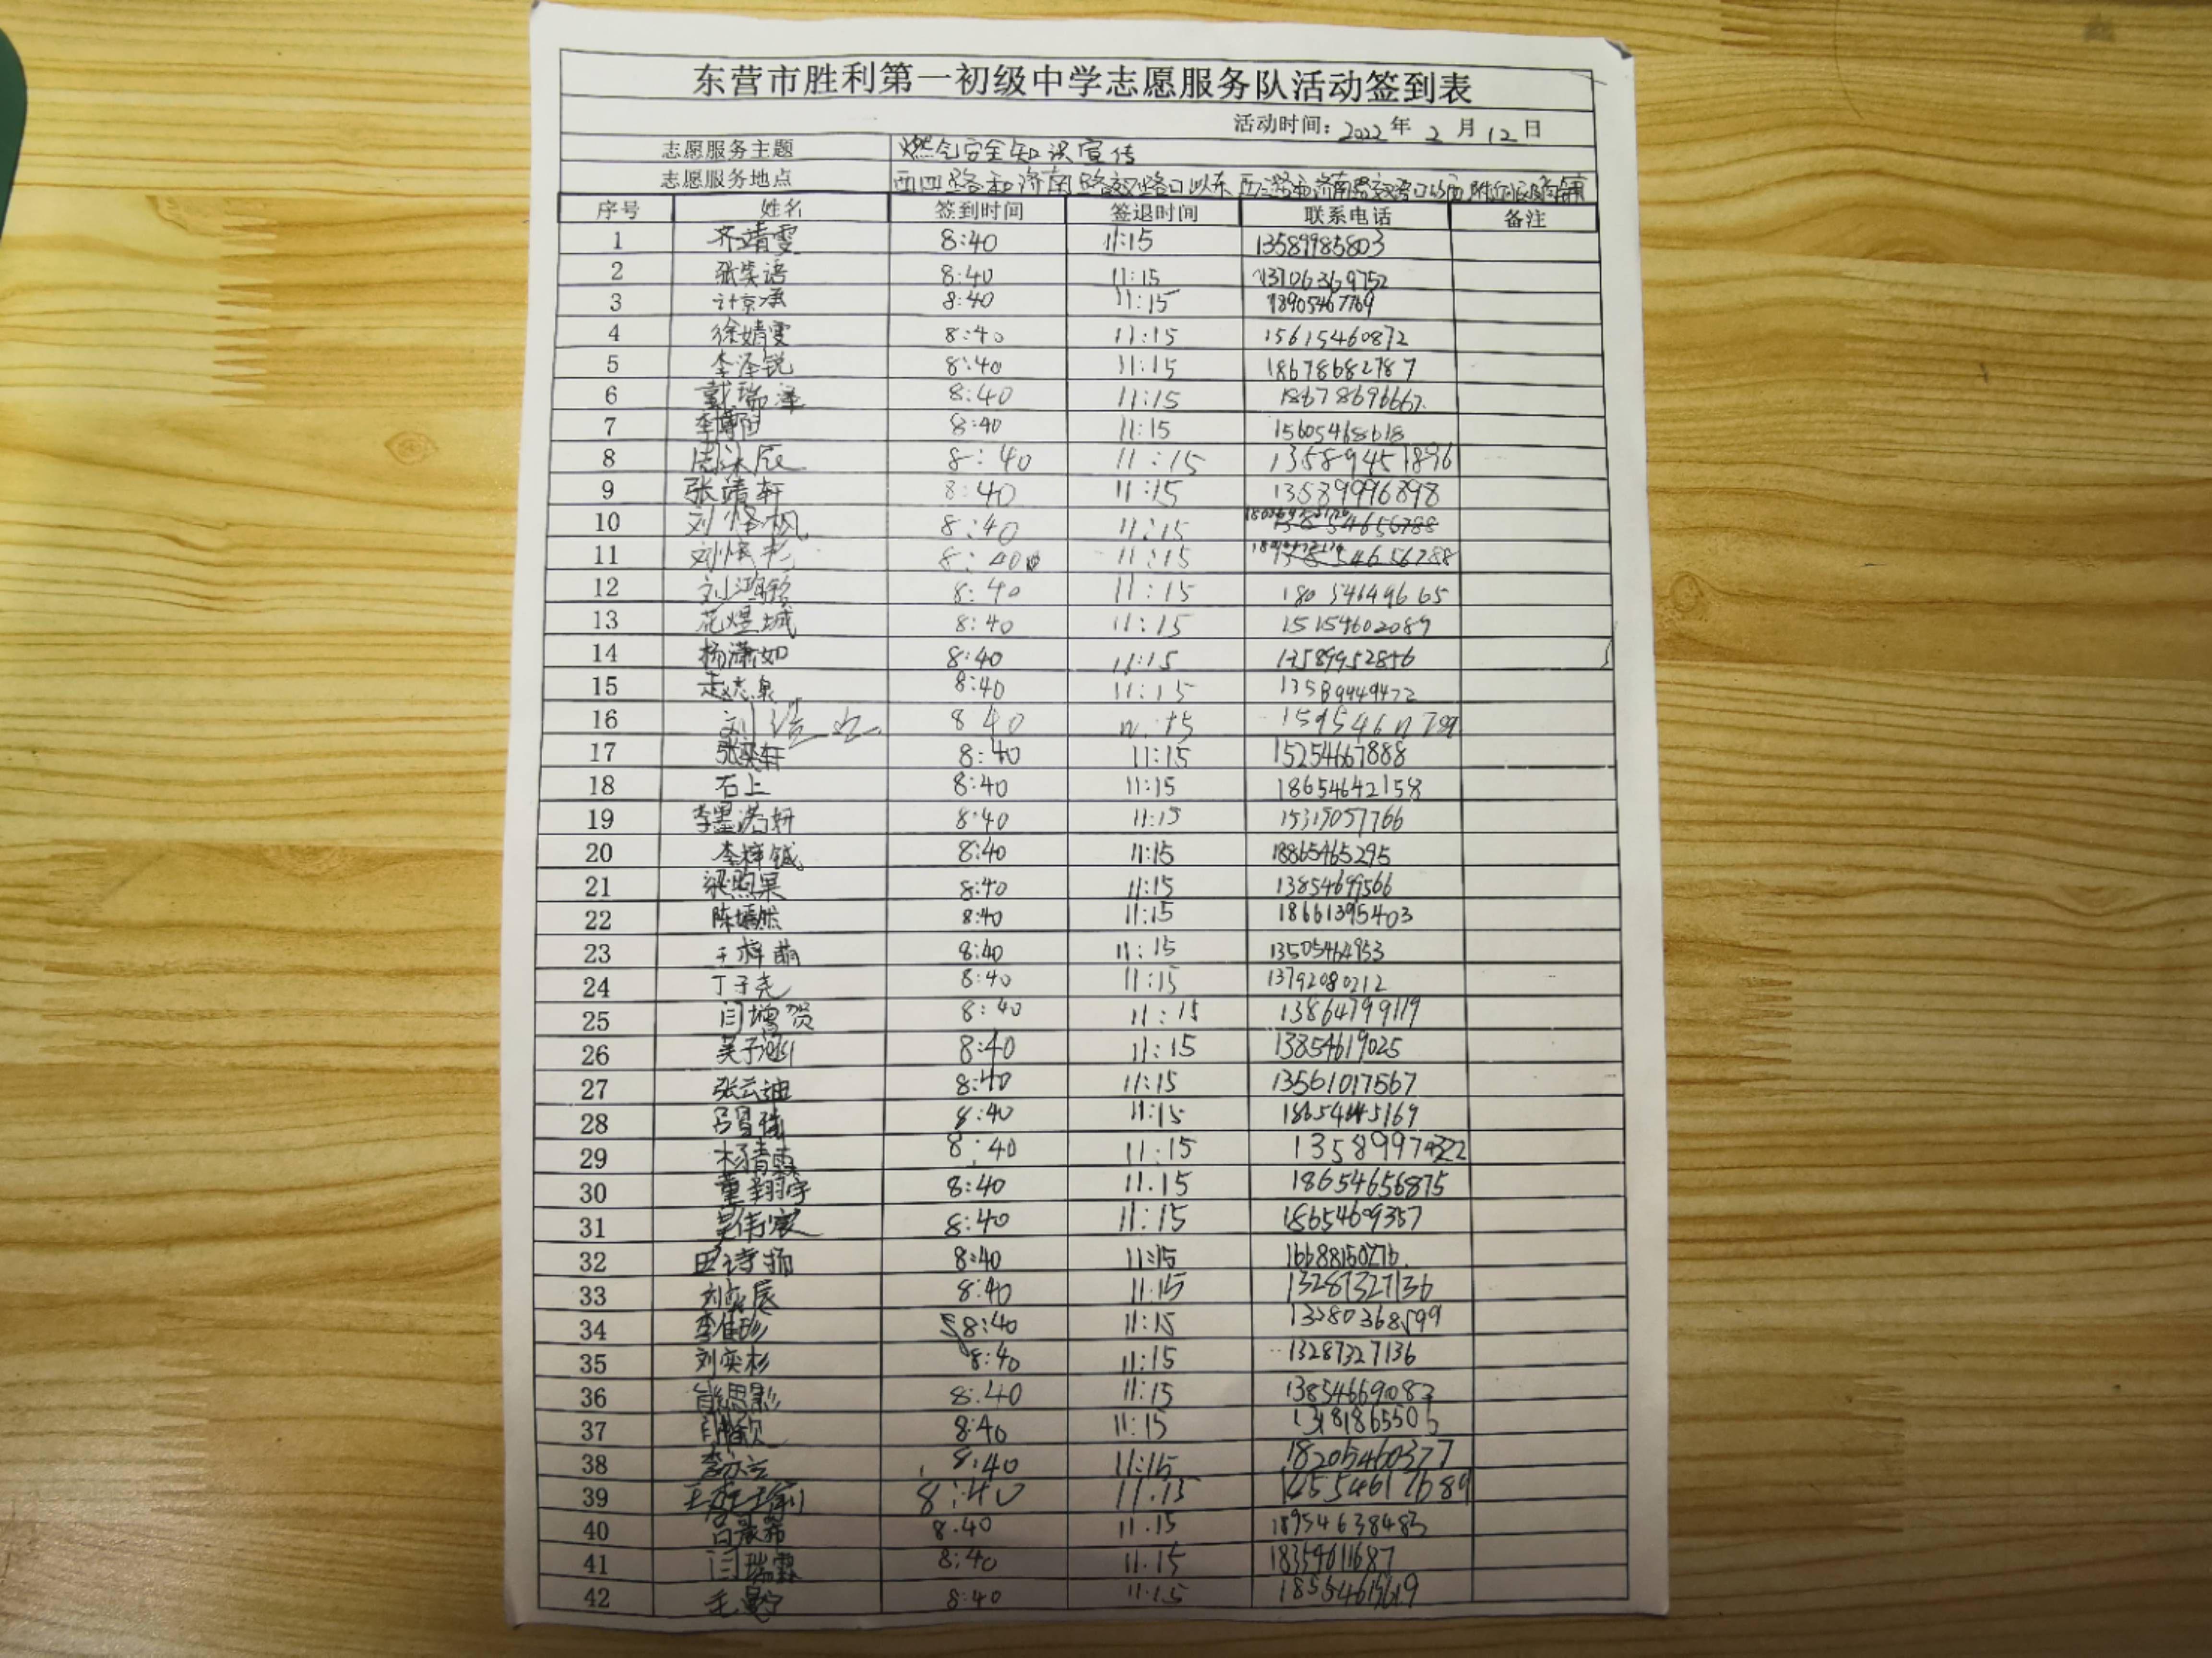 东营市胜利第一初级中学志愿服务队活动签到表
活动时间: 2022 年 2 月 12 日
志愿服务主题 燃气安全知识宣传
志愿服务地点 西四路和济南路交叉路口以东
序号 姓名 签到时间 签退时间 联系电话 备注
1 齐靖雯 8:40 11:15 13589985803
2 张奕语 8:40 11:15 13706369752
3 计京承 8:40 11:15 18905467769
4 徐婧雯 8:40 11:15 15615460872
5 李泽锐 8:40 11:15 18678682787
6 戴瑞泽 8:40 11:15 18678696667
7 8:40 11:15 15605468618
8 8:40 11:15 13589451896
9 张靖轩 8:40 11:15 13589996898
10 8:40 11:15
11 8:40 11:15
12 刘鸿铭 8:40 11:15 18054649665
13 花煜城 8:40 11:15 15154602089
14 杨潇如 8:40 11:15 13589952856
15 8:40 11:15 13589449472
16 8 40
17 张奕轩 8:40 11:15 15254667888
18 石上 8:40 11:15 18654642158
19 李墨涵妍 8:40 11:15 15319057766
20 李梓铖 8:40 11:15 18865465295
21 梁煦果 8:40 11:15 13854699566
22 陈嫣然 8:40 11:15 18661395403
23 王梓萌 8:40 11:15 13505464953
24 丁子尧 8:40 11:15 13792080212
25 闫增贺 8:40 11:15 13864799119
26 吴子涵 8:40 11:15 13854619025
27 张云迪 8:40 11:15 13561017567
28 吕昱臻 8:40 11:15
29 杨清霖 8:40 11:15
30 董翔宇 8:40 11.15 18654656875
31 吴伟宸 8:40 11:15 18654609357
32 田诗扬 8:40 11:15
33 8:40 11.15 13287327136
34 8:40 11:15 13280368599
35 刘奕杉 8:40 11:15 13287327136
36 8:40 11:15 13854669083
37 8:40 11:15
38 8:40 11:15 18205460377
39 8:40 11.15
40 8.40 11.15 18954638483
41 闫瑞霖 8:40 11.15 18354611687
42 8:40 11:15